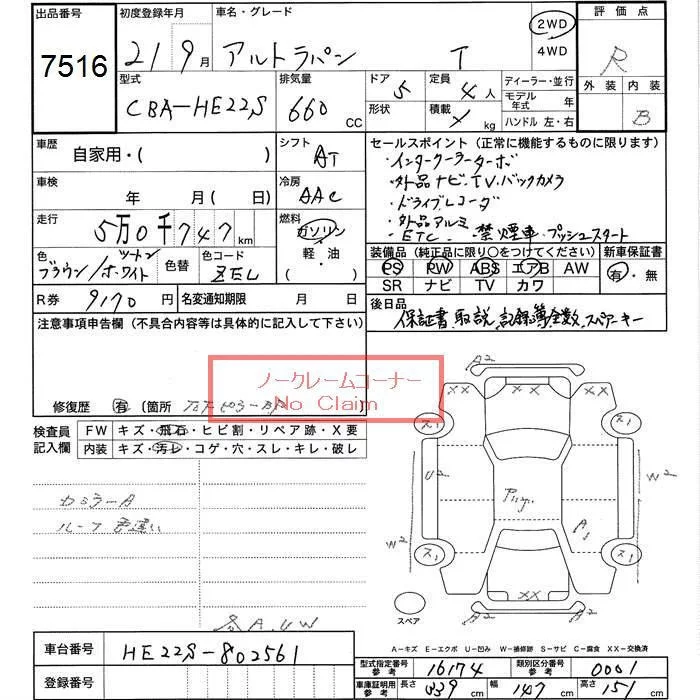 出品番号 初度登録年月 車名・グレード 評価点
7516 21 9月 アルトラパン T 2WD 4WD R
型式 排気量 ドア 5 定員 4人 ディーラー・並行 外装 内装
CBA-HE22S 660 CC 形状 積載 kg モデル年式 年 ハンドル 左・右 B
車歴 自家用・( ) シフト AT セールスポイント(正常に機能するものに限ります)
・インタークーラーターボ
車検 年 月( 日) 冷房 AAC ・外品ナビ.TV.バックカメラ
・ドライブレコーダ
走行 5万0千747km 燃料 ガソリン 軽・油 ( ) ・外品アルミ
・ETC. ・禁煙車・プッシュスタート
色 ブラウン/ホワイト ツートン 色替 色コード ZEL 装備品(純正品に限り○をつけてください) 新車保証書
PS PW ABS エアB AW 有・無
SR ナビ TV カワ
R券 9170円 名変通知期限 月 日 後日品
保証書.取説.記録簿全数.スペアーキー
注意事項申告欄(不具合内容等は具体的に記入して下さい)
ノークレームコーナー
No Claim
修復歴 有 〔箇所 〕
検査員記入欄 FW キズ・飛石・ヒビ割・リペア跡・X要
内装 キズ・汚レ・コゲ・穴・スレ・キレ・破レ
A2
XX XX
ス1 ス1
U2 W2
A1
W2
ルーフ色違い
ス1 ス1
XX
A2 A2
スペア
A.UW
A-キズ E-エクボ U-凹み W-補修跡 S-サビ C-腐食 XX-交換済
車台番号 HE22S-802561
型式指定番号参考 16174 類別区分番号参考 0001
登録番号 車庫証明用参考 長さ 339cm 幅 147cm 高さ 151cm